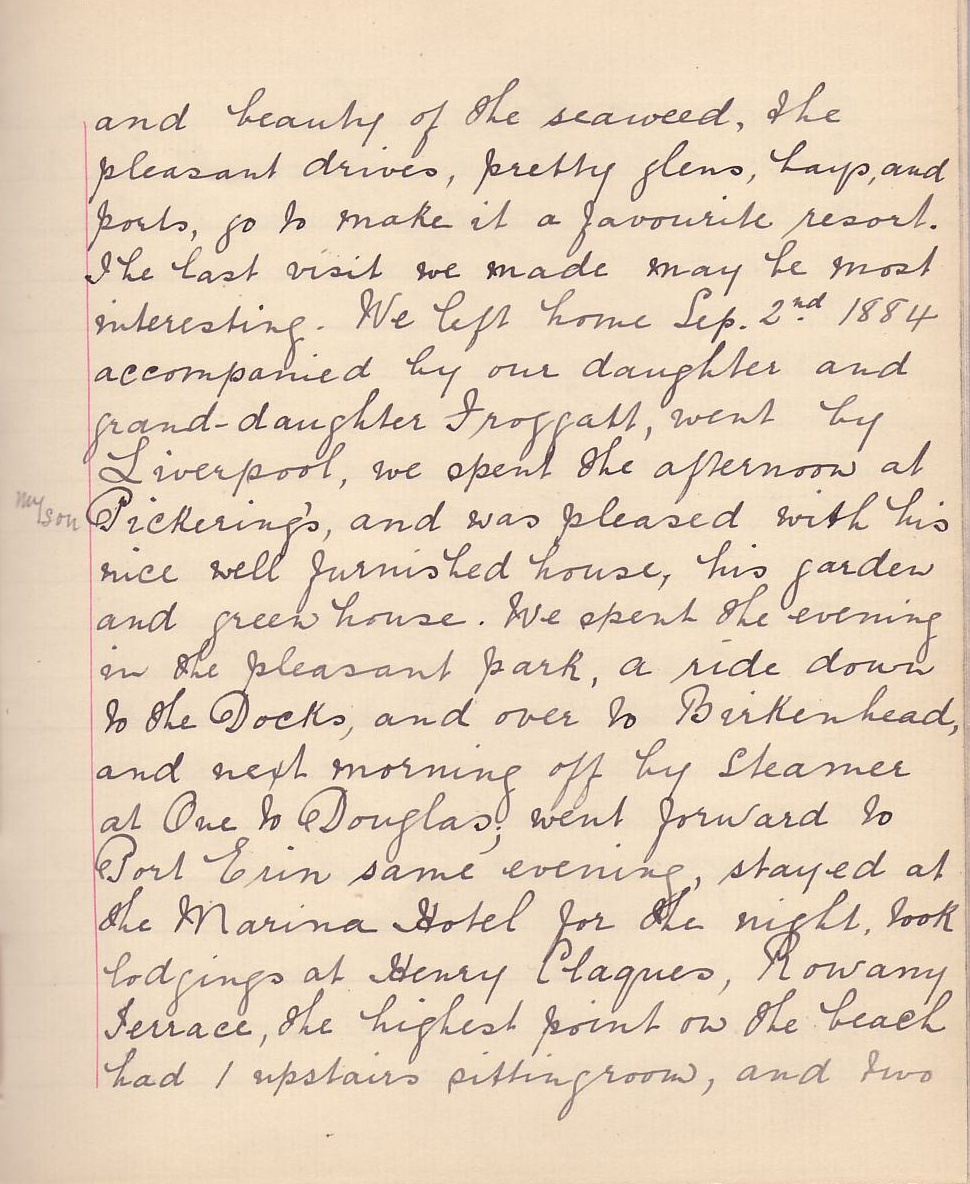 and beauty of the seaweed, the
pleasant drives, pretty glens, bays, and
ports, go to make it a favourite resort.
The last visit we made may be most
interesting. We left home Sep. 2nd 1884
accompanied by our daughter and
grand-daughter Froggatt, went by
Liverpool, we spent the afternoon at
my son
Pickering's, and was pleased with his
nice well furnished house, his garden
and green house. We spent the evening
in the pleasant park, a ride down
to the Docks, and over to Birkenhead,
and next morning off by Steamer
at One to Douglas; went forward to
Port Erin same evening, stayed at
the Marina Hotel for the night, took
lodgings at Henry Clagues, Rowany
Terrace, the highest point on the beach
had 1 upstairs sittingroom, and two